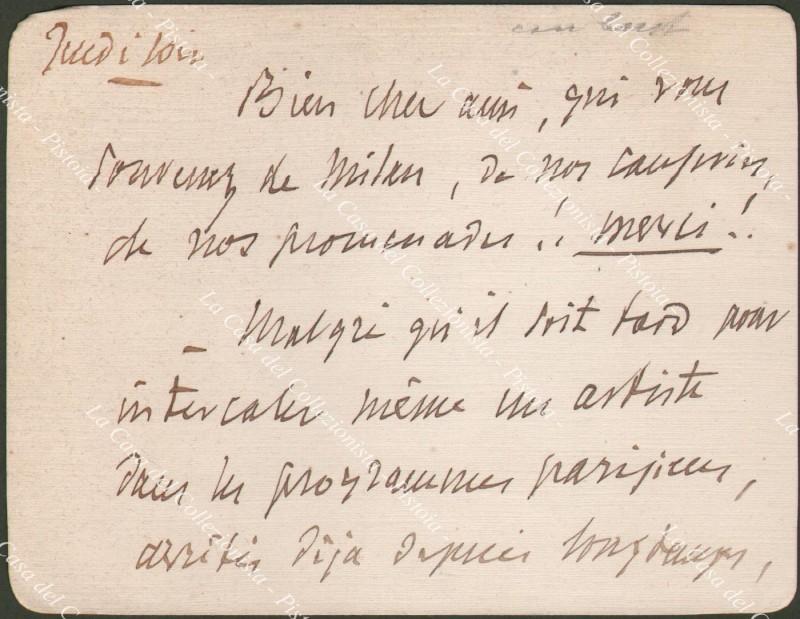 Jeudi soir
Bien cher ami, qui vous
souvenez de Milan, de nos causeries,
de nos promenades!! merci!
– Malgré qu'il soit tard pour
intercaler même un artiste
dans les programmes parisiens,
arrêtés déjà depuis longtemps,
La Casa del Collezionista - Pistoia -